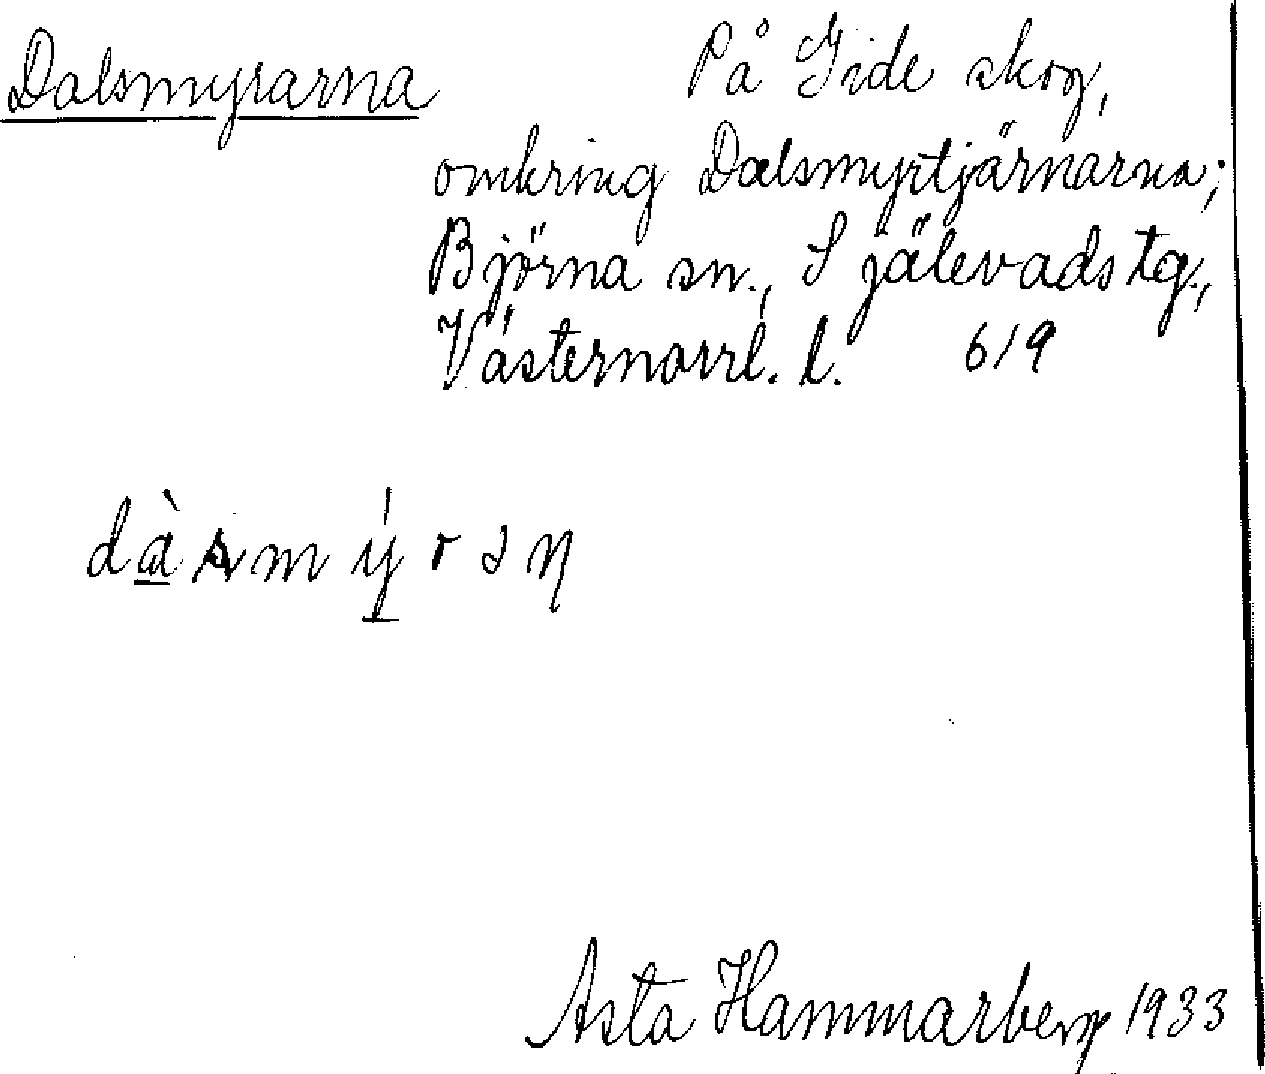 Dalsmyrarna
På Gide skog,
omkring Dalsmyrtjärnarna;
Björna sn., Själevads tg.,
Västernorrl. l. 619
dàsmýrəṇ
Asta Hammarberg 1933